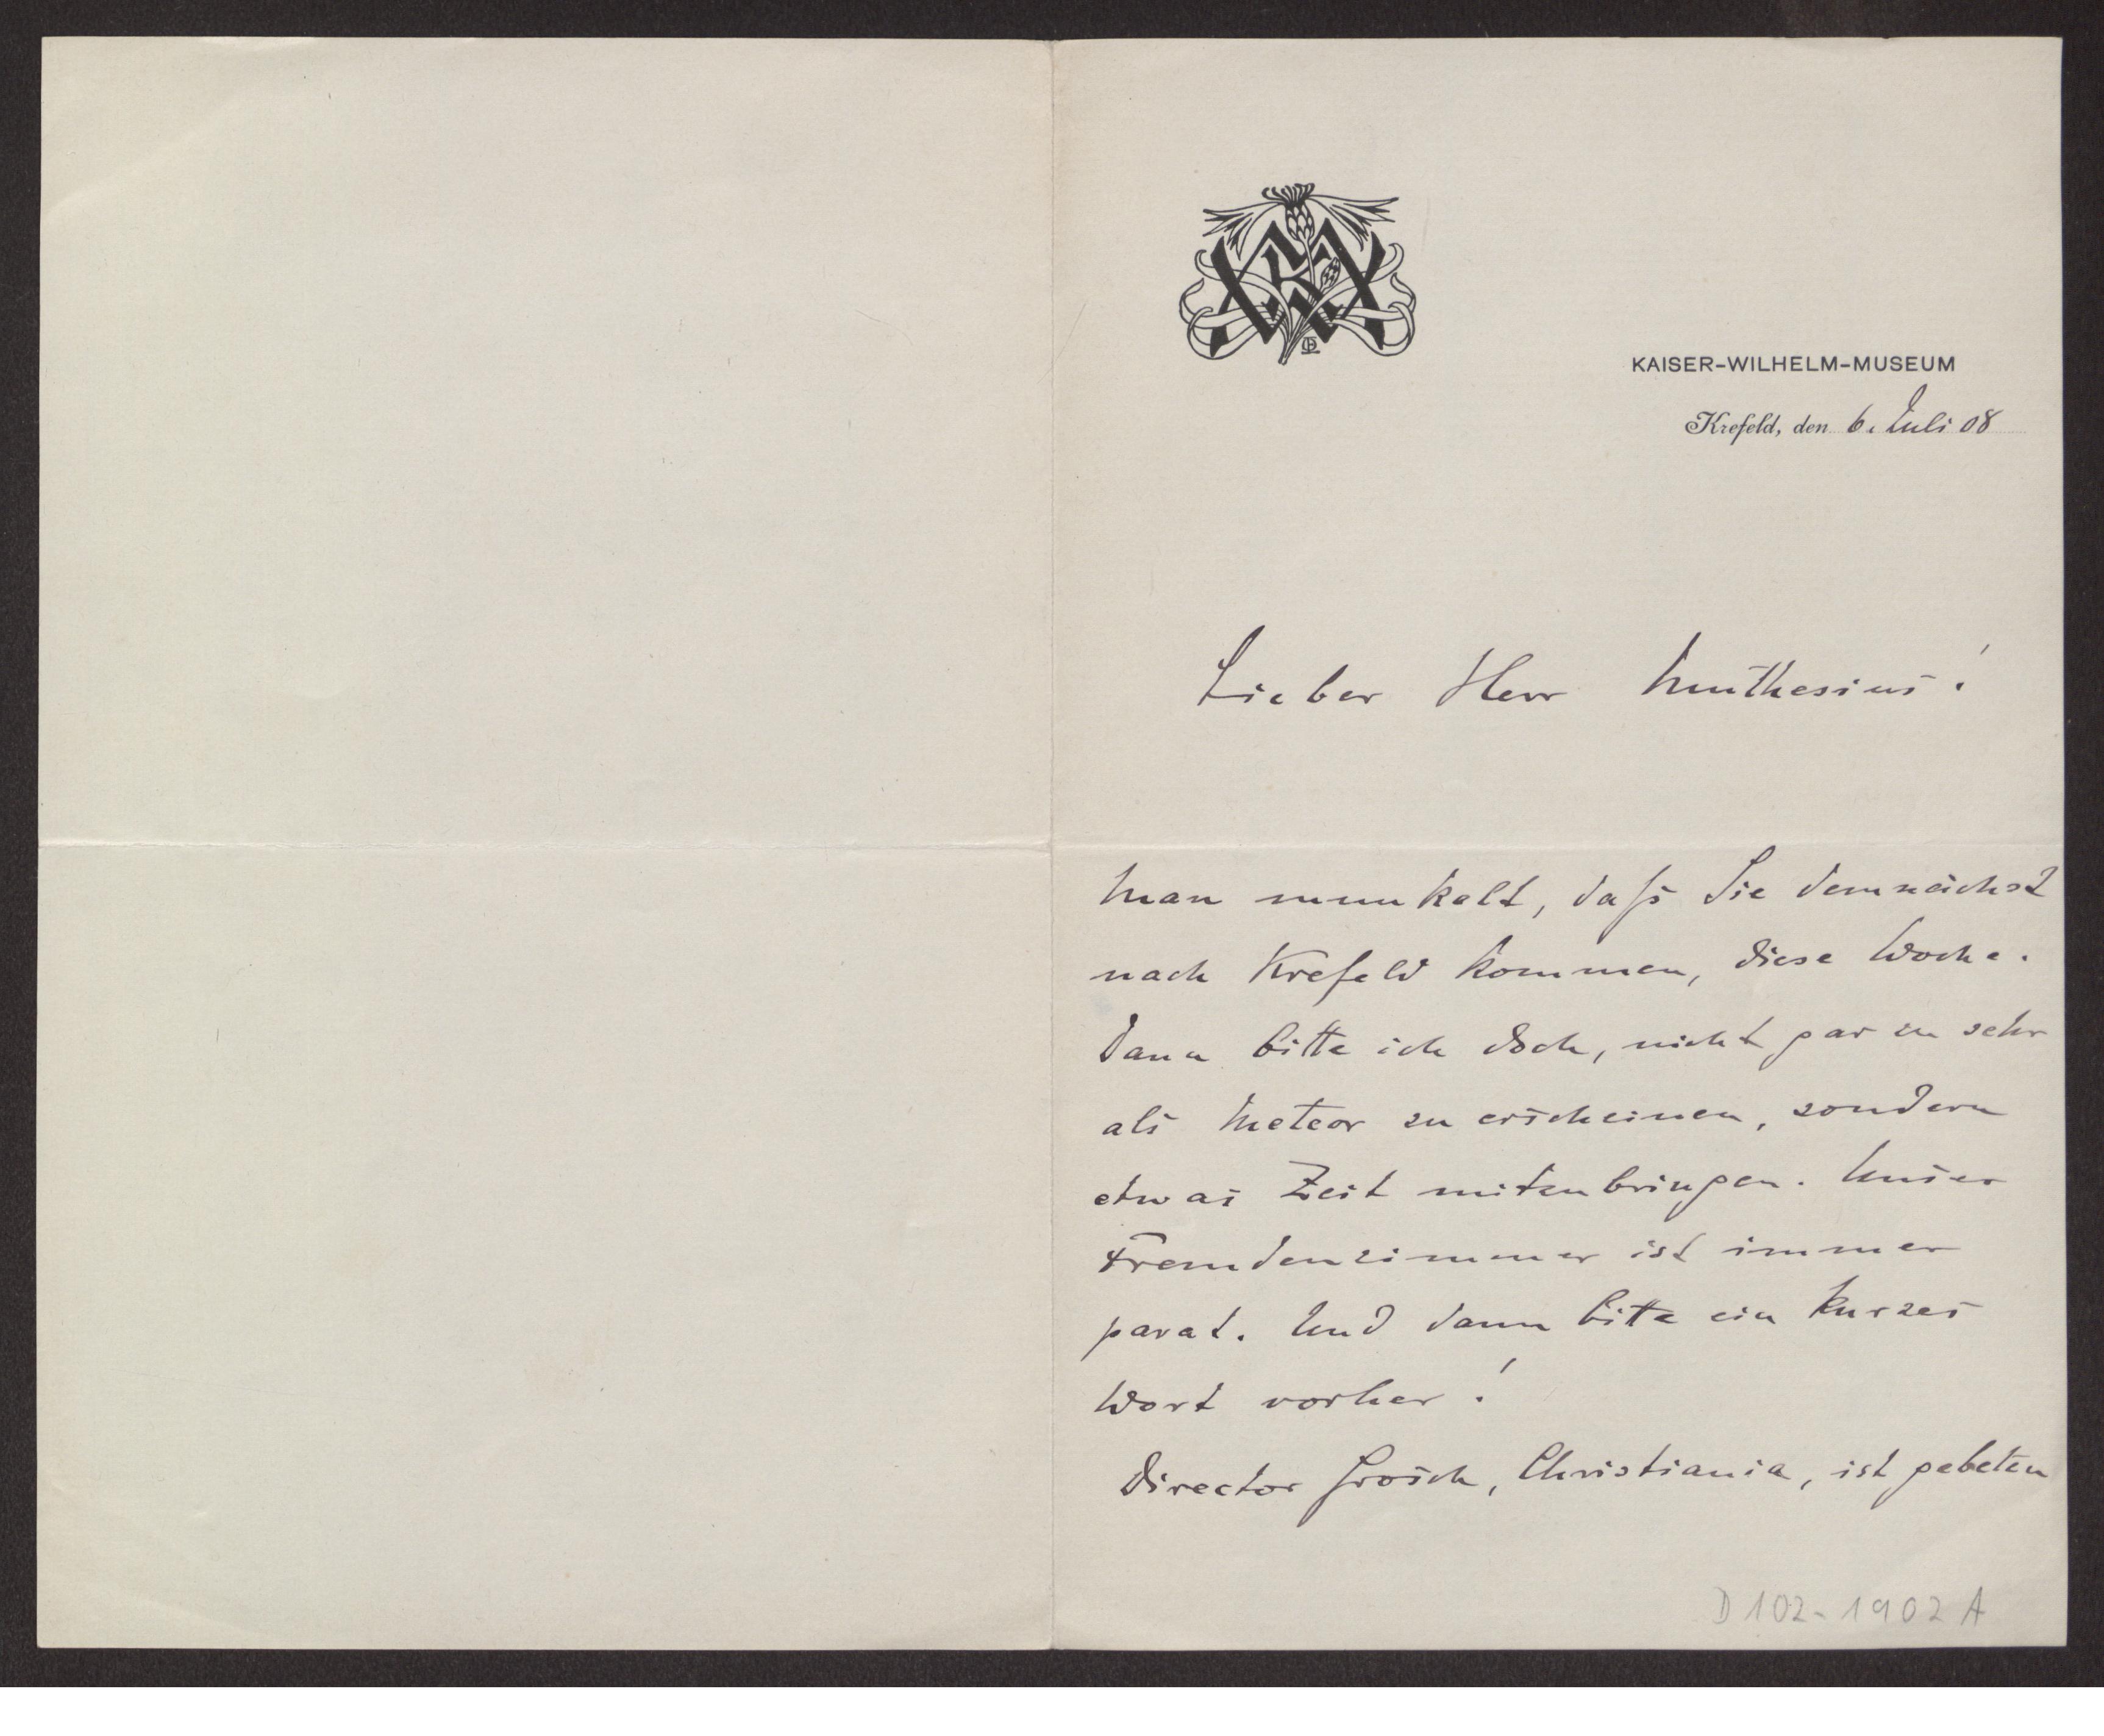 KAISER-WILHELM-MUSEUM
Krefeld, den 6. Juli 08
Lieber Herr Muthesius!
Man munkelt, daß Sie demnächst
nach Krefeld kommen, diese Woche.
Dann bitte ich doch, nicht gar zu sehr
als Meteor zu erscheinen, sondern
etwas Zeit mitzubringen. Unser
Fremdenzimmer ist immer
parat. Und dann bitte ein kurzes
Wort vorher!
Director Grosch, Christiania, ist gebeten
D 102-1902 A